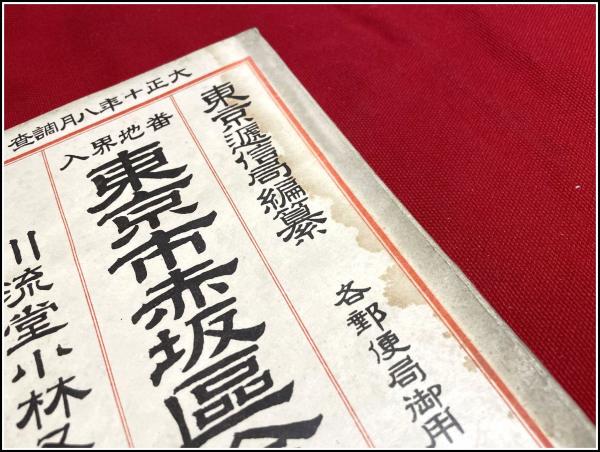 大正十年八月調査
東京逓信局編纂
各郵便局御用
番地界入
東京市赤坂區
川流堂小林又